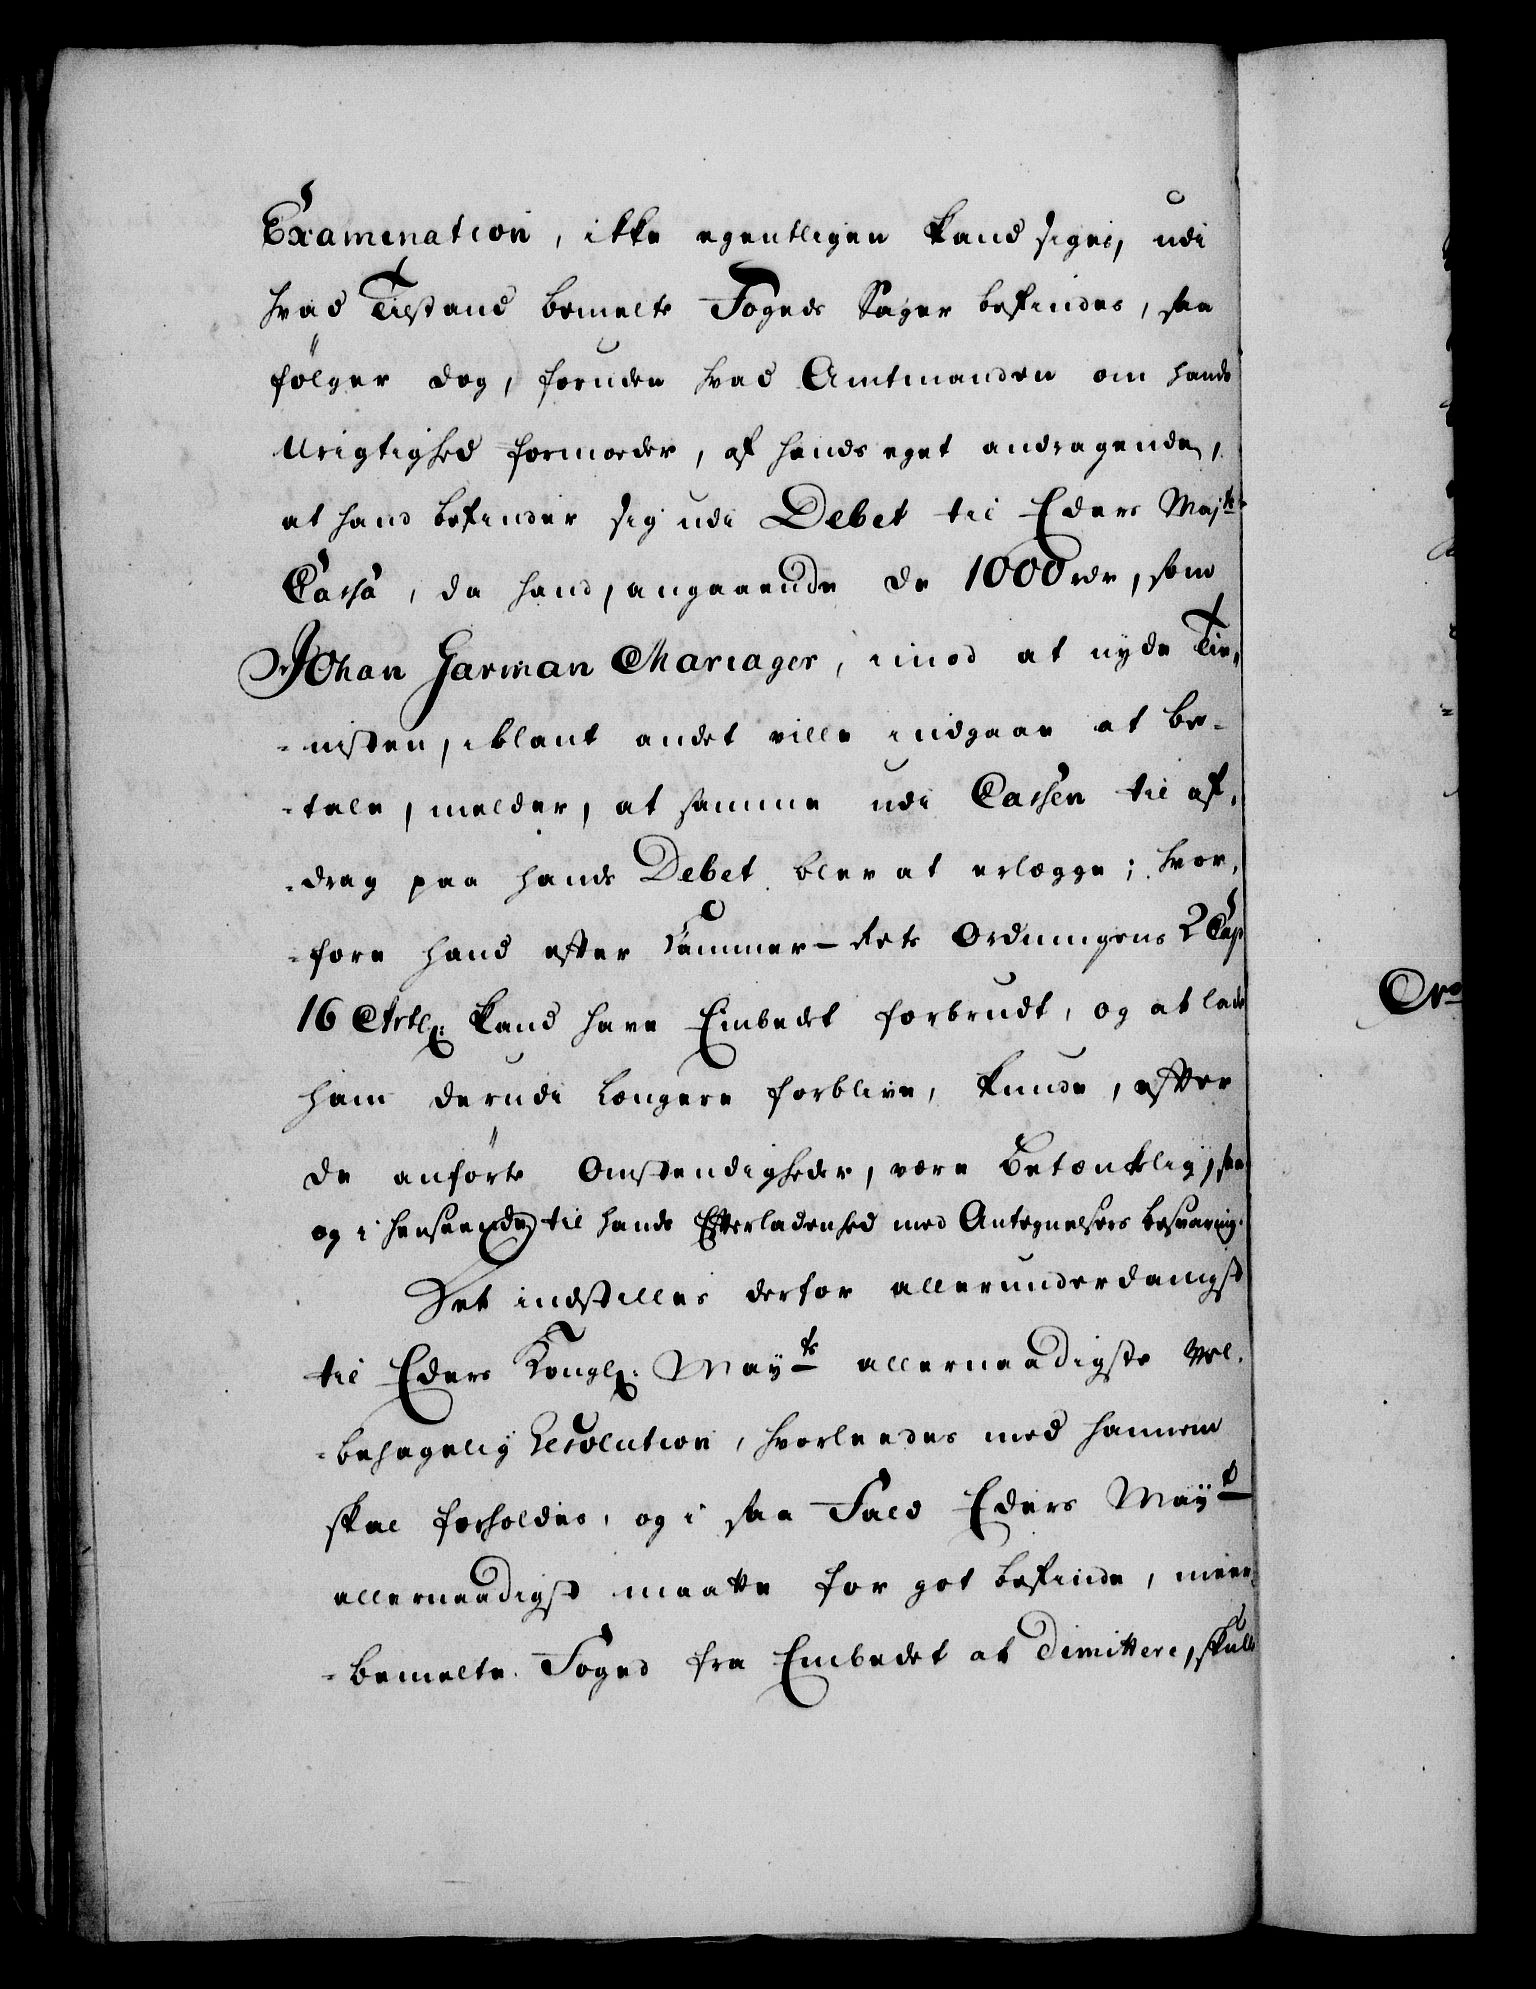 Examination, ikke egentligen kand siges, udi
hvad Tilstand bemelte Fogeds Sager befindes, saa
følger dog, foruden hvad Amtmanden om hands
Urigtighed formoder, af hands eget andragende,
at hand befinder sig udi Debet til Eders Majts
Cassa, da hand, angaaende de 1000 rdr, som
Johan Garman Mariager, imod at nyde Tie-
-nisten, iblant andet ville indgaae at be-
-tale, melder, at samme udi Cassen til af-
-drag paa hands Debet blev at erlægge; hvor-
-fore hand efter Kammer-Rets Ordningens 2 Cap
16 Artl: kand have Embedet forbrudt, og at lade
ham derudi længere forblive, kunde, efter
de anførte Omstendigheder, være Betænkelig, saa
og i henseende til hands Efterladenhed med Antegnelsers besvaring.
Det indstilles derfor allerunderdanigst
til Eders Kongl: Mayts allernaadigste Vel-
-behagelig Resolution, hvorleedes med hannem
skal forholdes, og i saa Fald Eders Mayt
allernaadigst maatte for got befinde, meer-
-bemelte Foged fra Embedet at dimittere, skulle